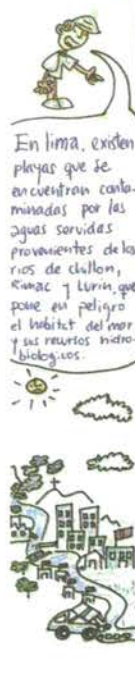 En lima, existen
playas que se
encuentran conta-
minadas por las
aguas servidas
provenientes de los
rios de chillon,
Rimac y Lurin, que
pone en peligro
el habitat del mar
y sus recursos hidro-
biologicos.